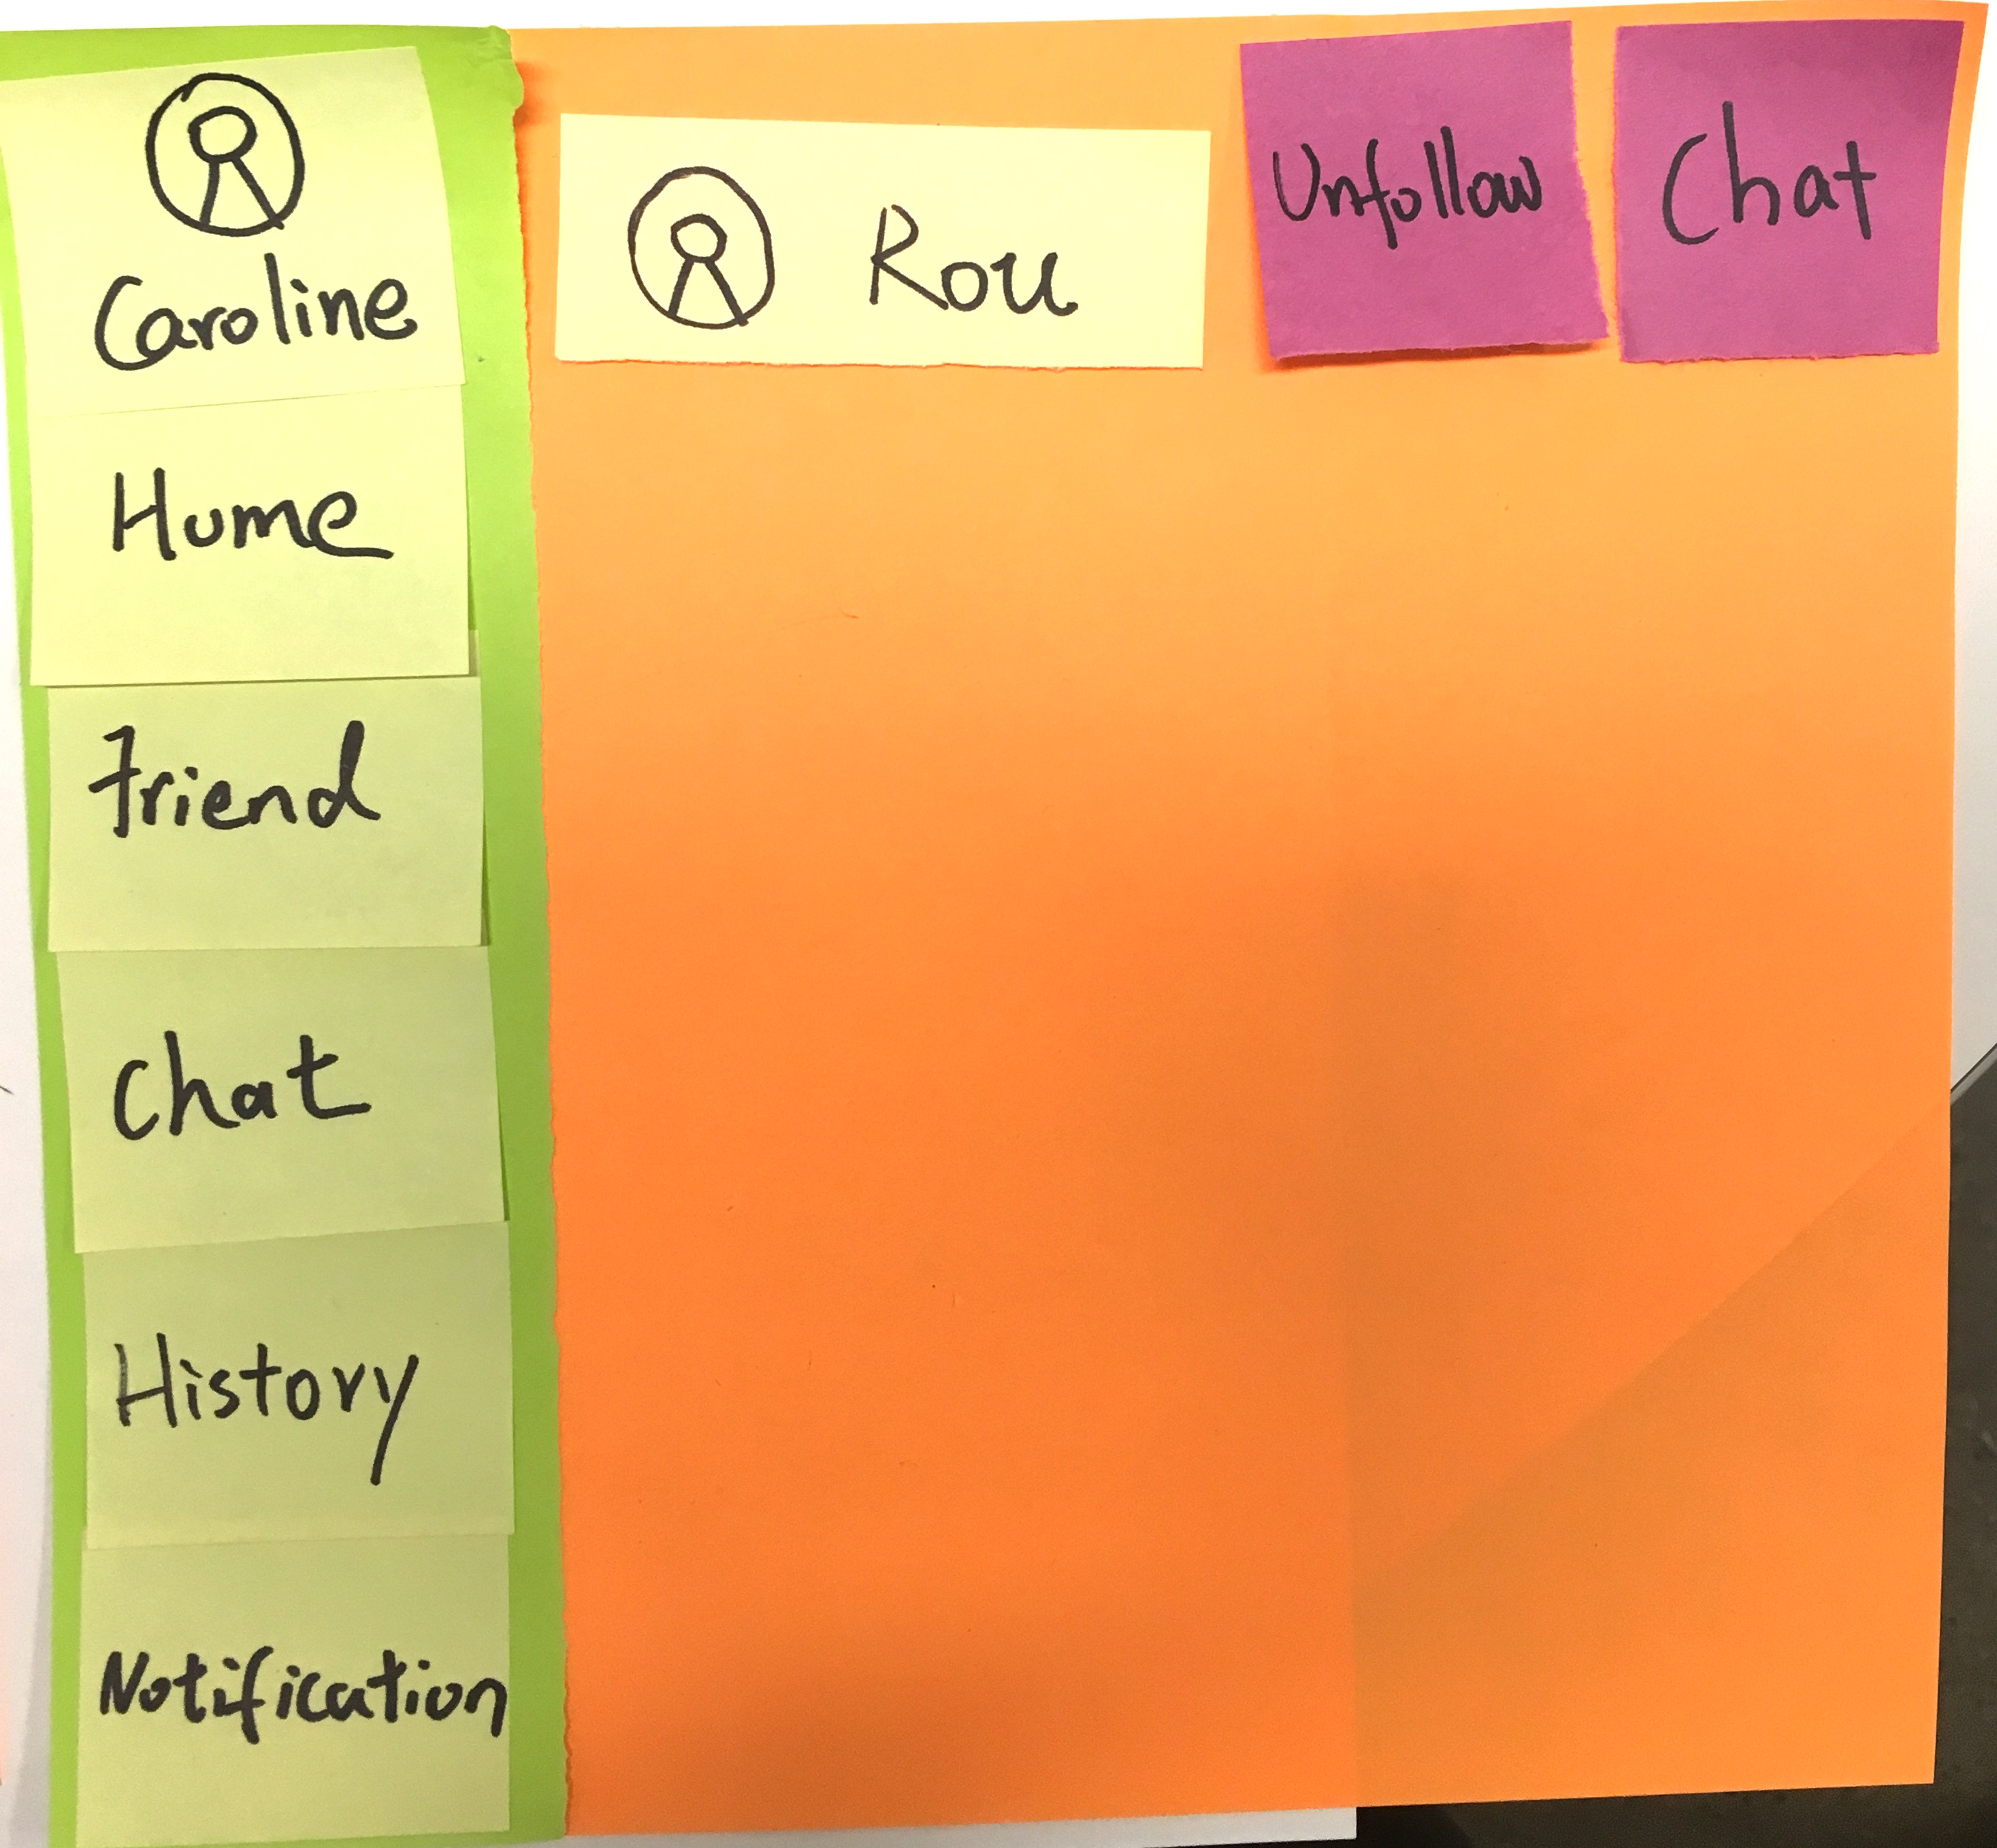 Caroline
Home
Friend
Chat
History
Notification
Rou
Unfollow
Chat